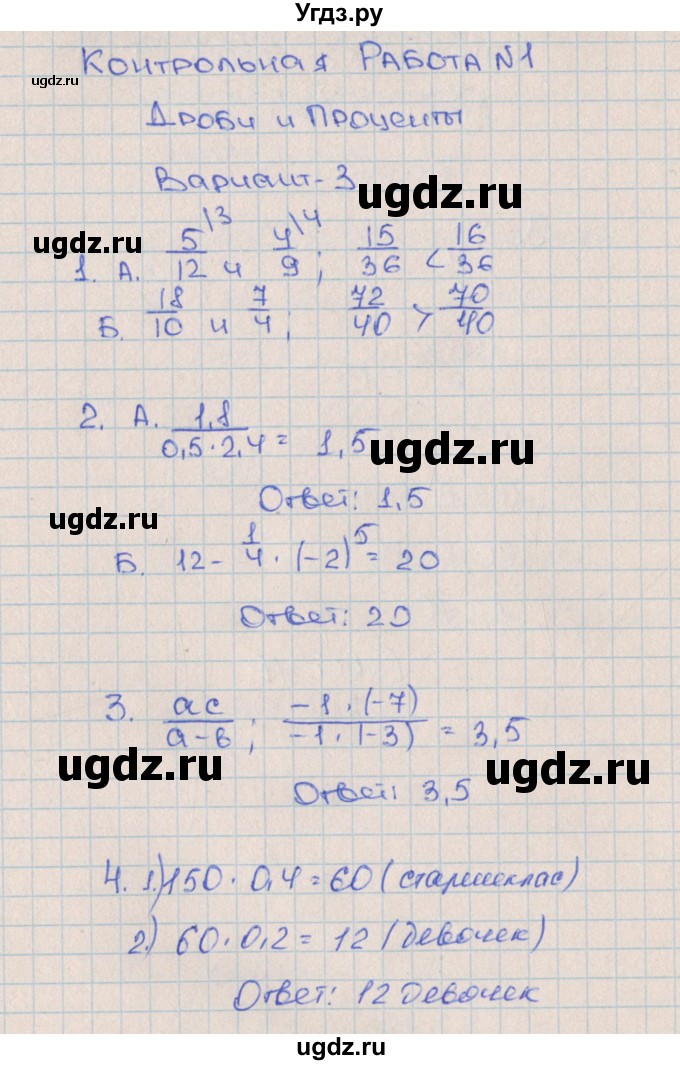 Угдз.ру
Контрольная Работа №1
ugdz.ru
Дроби и Проценты
Вариант-3
ugdz.ru
ugdz.ru
1. А. 5/12 \3 и 4/9 \4; 15/36 < 16/36
Б. 18/10 и 7/4; 72/40 > 70/40
2. А. 1,8/0,5·2,4 = 1,5
ugdz.ru
Ответ: 1,5
ugdz.ru
Б. 12 - 1/4 · (-2)^5 = 20
Ответ: 20
3. ac/a-в; -1·(-7)/-1·(-3) = 3,5
ugdz.ru
ugdz.ru
Ответ: 3,5
4. 1.) 150·0,4=60 (старшеклас)
2.) 60·0,2 = 12 (девочек)
Ответ: 12 девочек
ugdz.ru